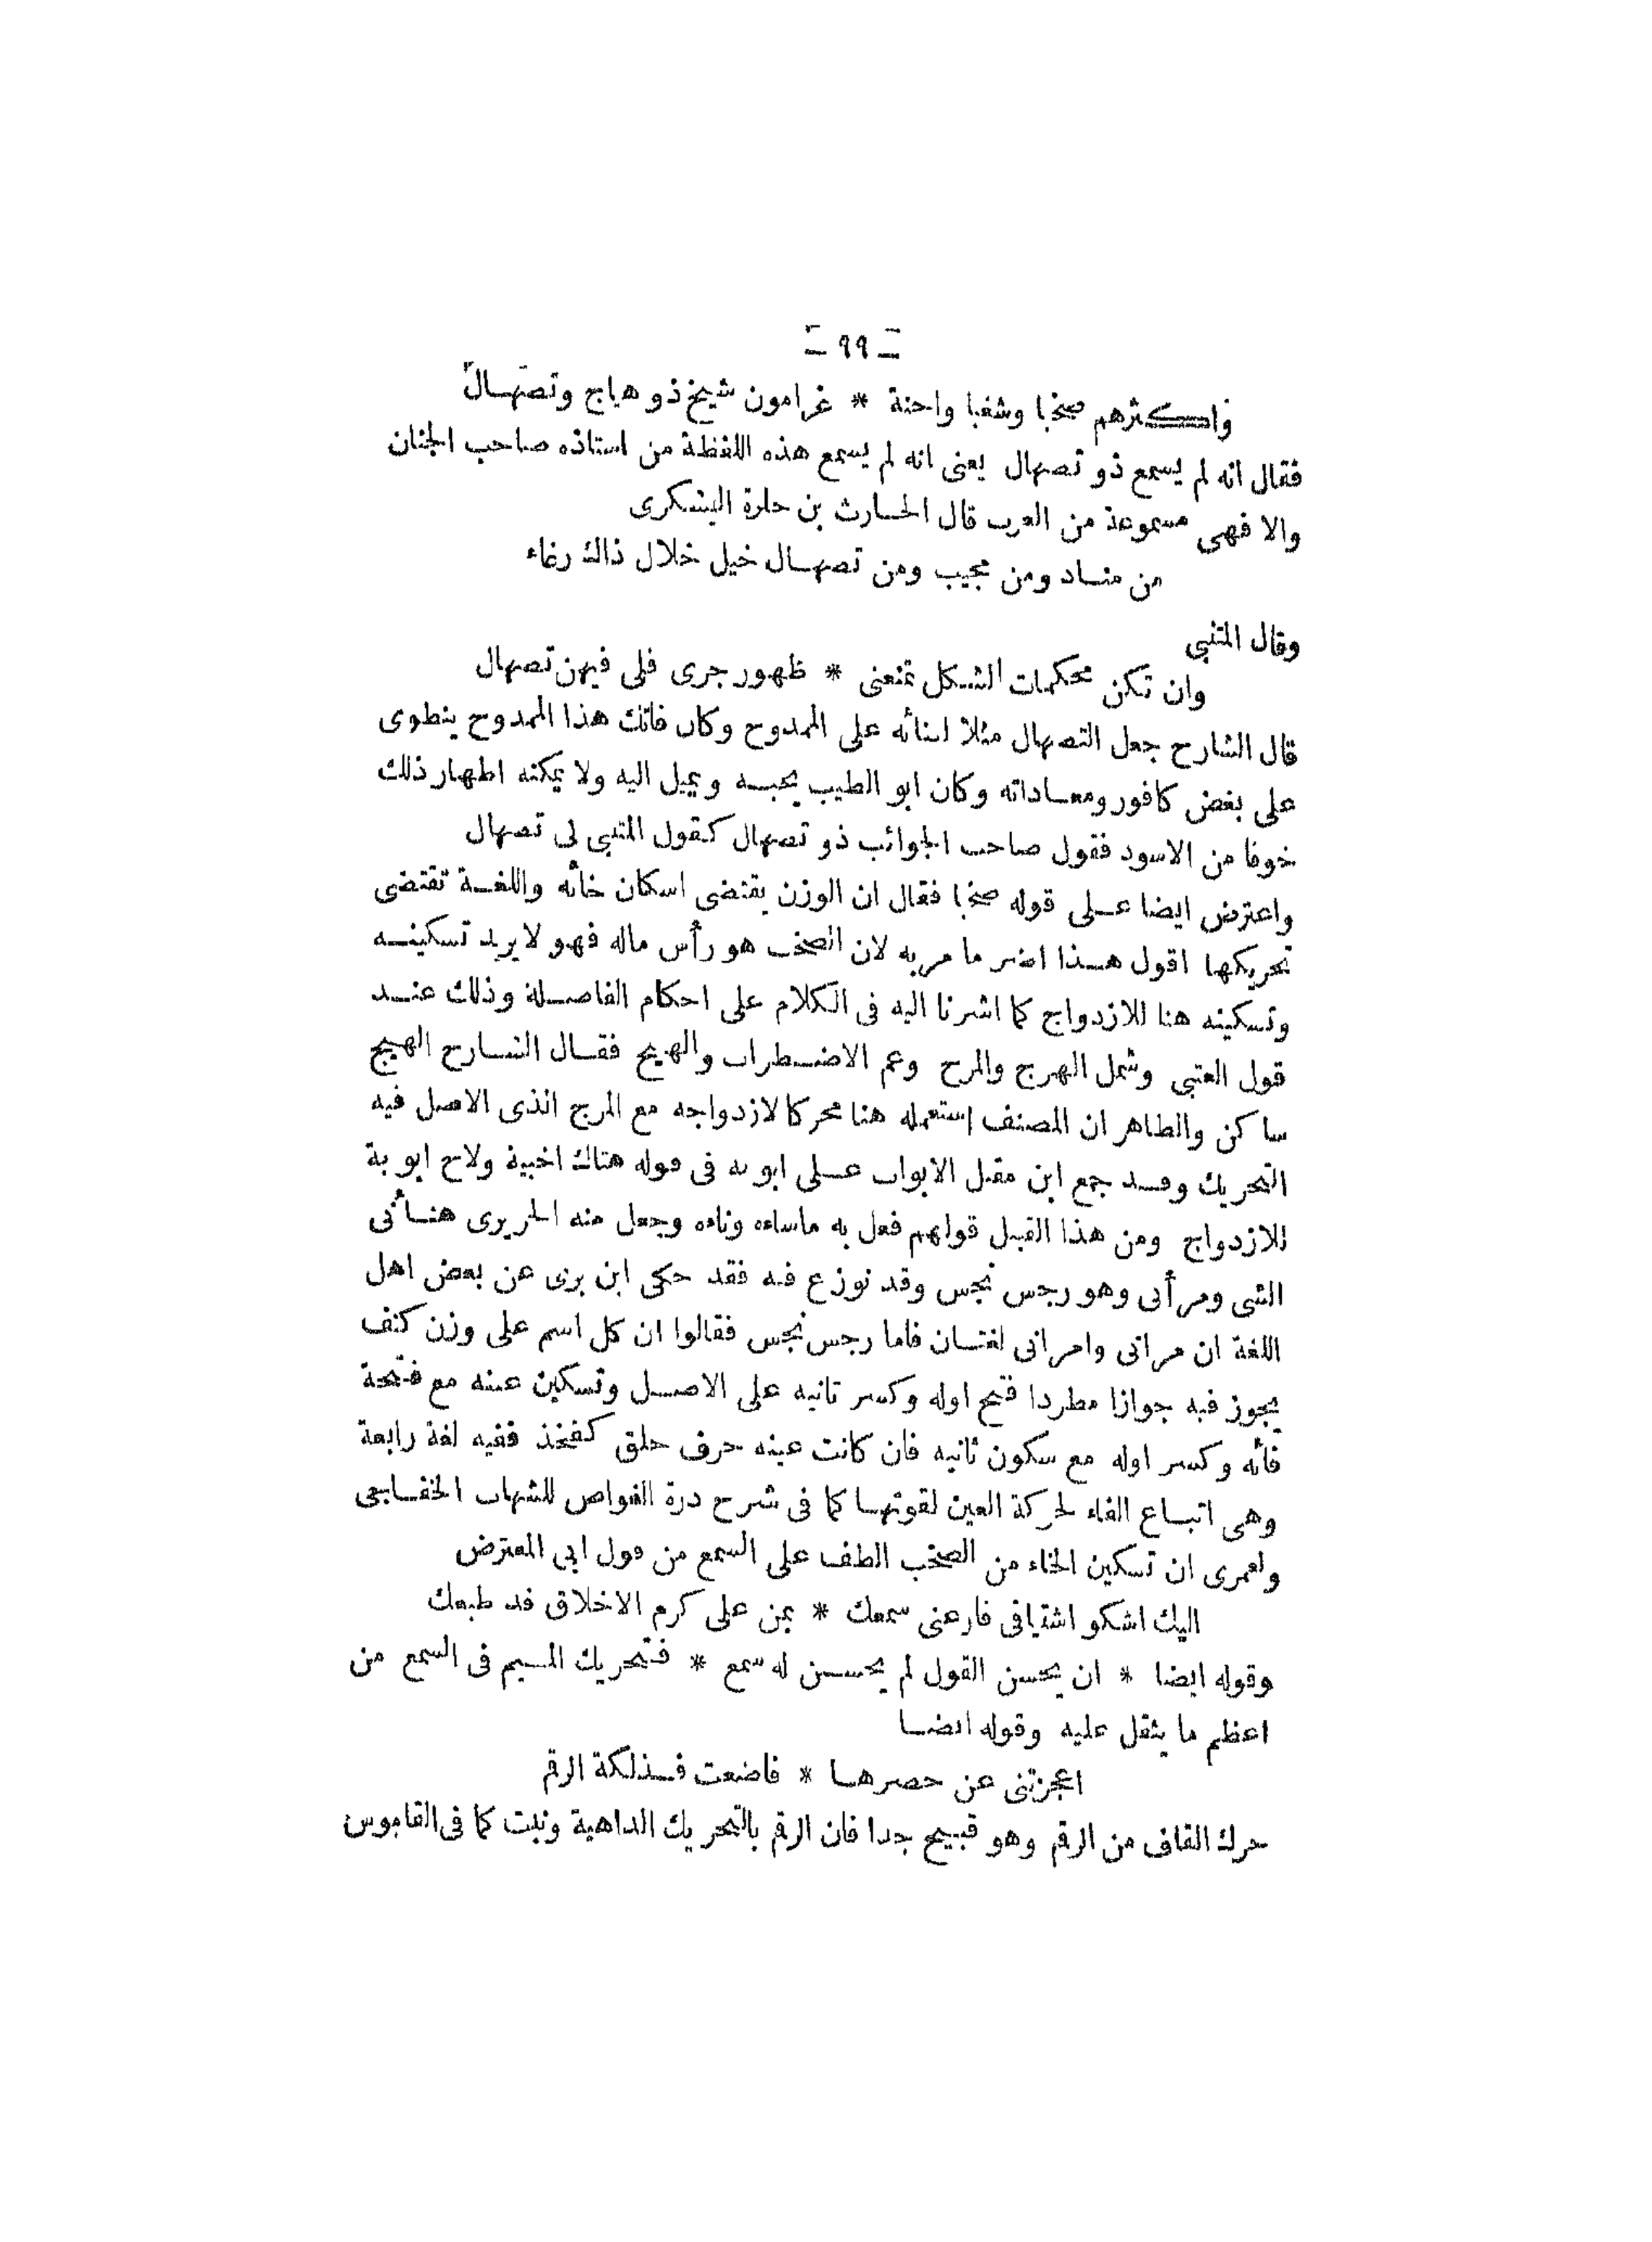 — ٩٩ —
واكثرهم صخبا وشغبا واحنة * غرامون شيخ ذو هياج وتصهال
فقال انه لم يسمع ذو تصهال يعنى انه لم يسمع هذه اللفظة من استاذه صاحب الجنان
والا فهى مسموعة من العرب قال الحارث بن حلزة اليشكرى
من مناد ومن مجيب ومن تصهال خيل خلال ذاك رغاء
وقال المتنبى
وان تكن محكمات الشكل تمنعنى * ظهور جرى فلى فيهن تصهال
قال الشارح جعل التصهال مثلا لثنائه على الممدوح وكان فاتك هذا الممدوح ينطوى
على بغض كافور ومعاداته وكان ابو الطيب يحبه ويميل اليه ولا يمكنه اظهار ذلك
خوفا من الاسود فقول صاحب الجوائب ذو تصهال كقول المتنبى لى تصهال
واعترض ايضا على قوله صخبا فقال ان الوزن يقتضى اسكان خائه واللغة تقتضى
تحريكها اقول هذا اضر ما مر به لان الصخب هو رأس ماله فهو لا يريد تسكينه
وتسكينه هنا للازدواج كما اشرنا اليه فى الكلام على احكام الفاصلة وذلك عند
قول العتبى وشمل الهرج والمرج وعم الاضطراب والهيج فقال الشارح الهيج
ساكن والظاهر ان المصنف استعمله هنا محركا لازدواجه مع المرج الذى الاصل فيه
التحريك وقد جمع ابن مقبل الابواب على ابوبة فى قوله هتاك اخبية ولاج ابوبة
للازدواج ومن هذا القبيل قولهم فعل به ماساءه وناءه وجعل منه الحريرى هنأنى
الشى ومرأنى وهو رجس نجس وقد نوزع فيه فقد حكى ابن برى عن بعض اهل
اللغة ان مرانى وامرانى لغتان فاما رجس نجس فقالوا ان كل اسم على وزن كتف
يجوز فيه جوازا مطردا فتح اوله وكسر ثانيه على الاصل وتسكين عينه مع فتحة
فائه وكسر اوله مع سكون ثانيه فان كانت عينه حرف حلق كفخذ ففيه لغة رابعة
وهى اتباع الفاء لحركة العين لقوتها كما فى شرح درة الغواص للشهاب الخفاجى
ولعمرى ان تسكين الخاء من الصخب الطف على السمع من قول ابى المعترض
اليك اشكو اشتياقى فارعنى سمعك * بمن على كرم الاخلاق قد طبعك
وقوله ايضا * ان يحسن القول لم يحسن له سمع * فتحريك الميم فى السمع من
اعظم ما يثقل عليه وقوله ايضا
اعجزتنى عن حصرها * فاضعت فذلكة الرقم
حرك القاف من الرقم وهو قبيح جدا فان الرقم بالتحريك الداهية ونبت كما فى القاموس